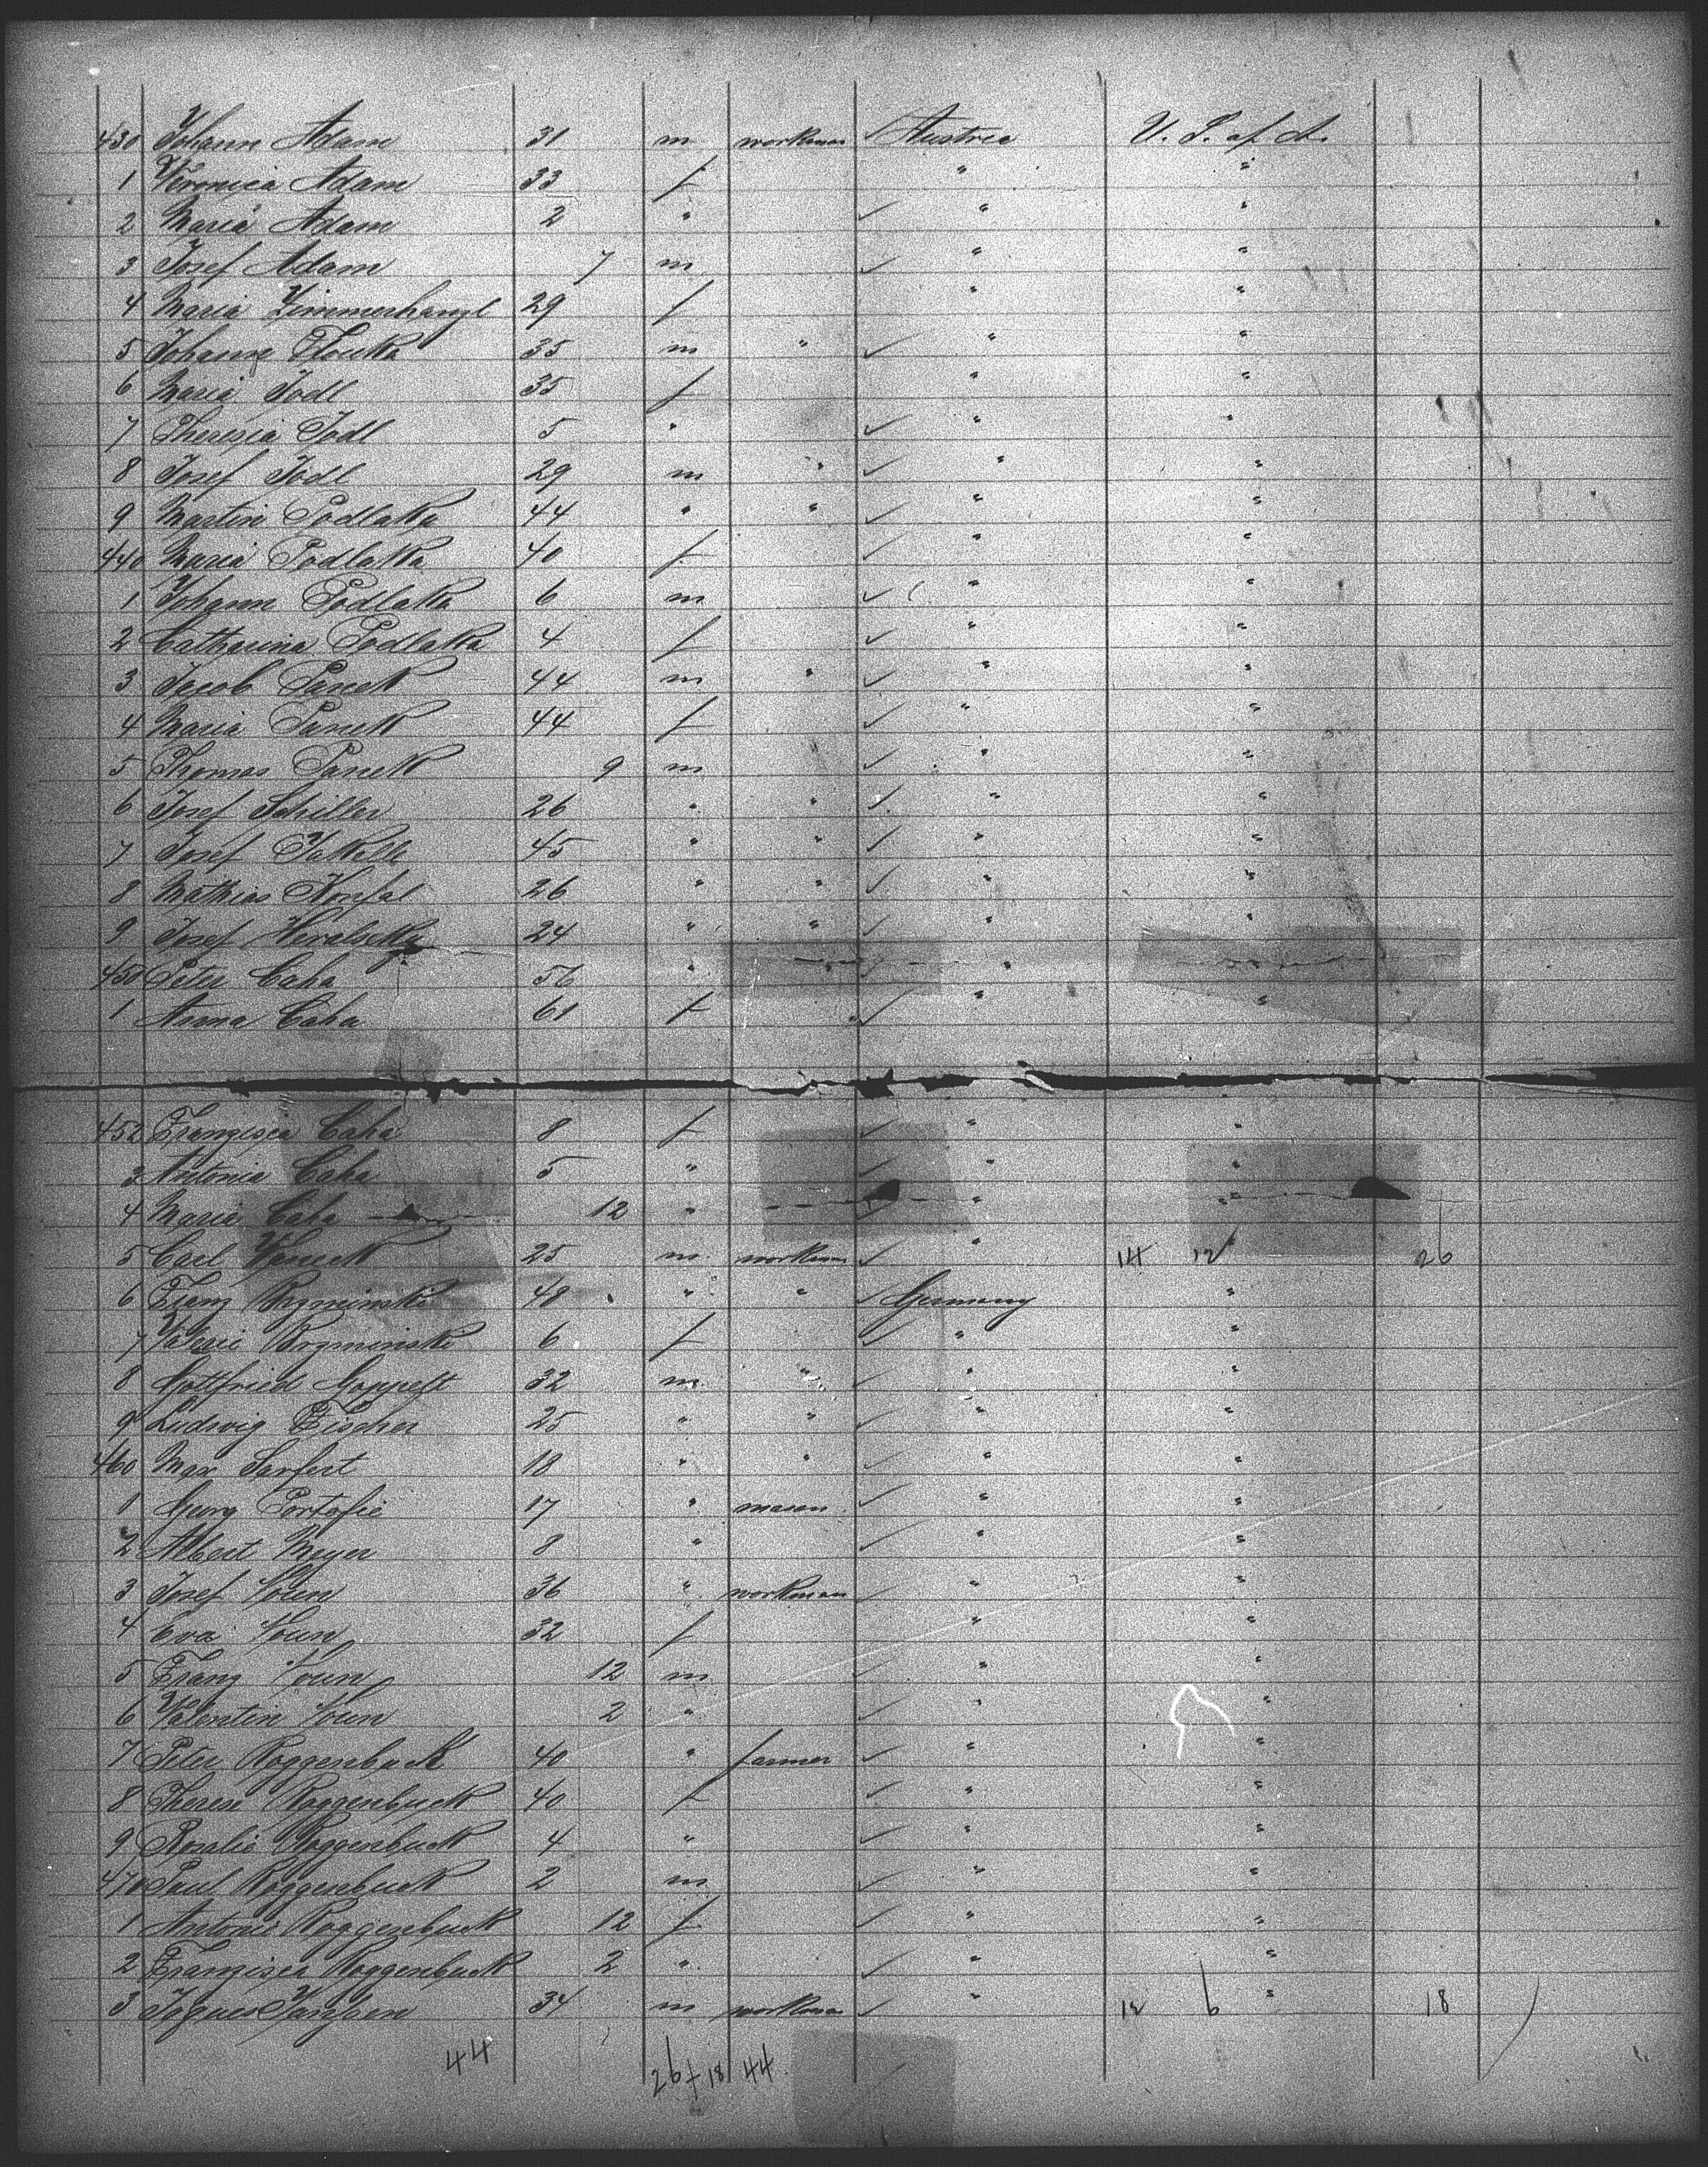 430 Johann Adam 31 m workman ✓ Austria U. S. of A.
1 Veronica Adam 33 f " "
2 Maria Adam 2 " ✓ " "
3 Josef Adam 7 m ✓ " "
4 Maria Zimmerhanzl 29 f "
5 Johann 35 m " ✓ " "
6 Maria Jodl 35 f " "
7 Theresia Jodl 5 " ✓ " "
8 Josef Jodl 29 m " ✓ " "
9 Martin Podlaka 44 " " ✓ " "
440 Maria Podlaka 40 f ✓ " "
1 Johann Podlaka 6 m ✓ " "
2 Catharina Podlaka 4 f ✓ " "
3 Jacob Panek 44 m " ✓ " "
4 Maria Panek 44 f ✓ " "
5 Thomas Panek 9 m ✓ " "
6 Josef Schiller 26 " " ✓ " "
7 Josef 45 " " ✓ " "
8 Mathias 26 " " ✓ " "
9 Josef 24 " " ✓ " "
450 Peter Caha 56 " " ✓ "
1 Anna Caha 61 f ✓ " "
452 Franzisca Caha 8 f ✓ " "
3 Antonia Caha 5 " ✓ " "
4 Maria Caha 12 " ✓ " "
5 Carl 25 m workman ✓ " 14 12 " 26
6 Franz 48 " " ✓ Germany "
7 Valerie 6 f ✓ " "
8 Gottfried 32 m " ✓ " "
9 Ludwig Fischer 25 " " ✓ " "
460 Max Sarfert 18 " " ✓ " "
1 Georg 17 " mason ✓ " "
2 Albert Meyer 8 " ✓ " "
3 Josef 36 " workman ✓ " "
4 Eva 32 f " "
5 Franz 12 m ✓ " "
6 Valentin 2 " ✓ " "
7 Peter Roggenbuck 40 " farmer ✓ " "
8 Therese Roggenbuck 40 f ✓ " "
9 Rosalie Roggenbuck 4 " ✓ " "
470 Paul Roggenbuck 2 m ✓ " "
1 Antonie Roggenbuck 12 f ✓ " "
2 Franzisca Roggenbuck 2 " ✓ " "
3 34 m workman ✓ " 12 6 " 18
44 26 + 18 44